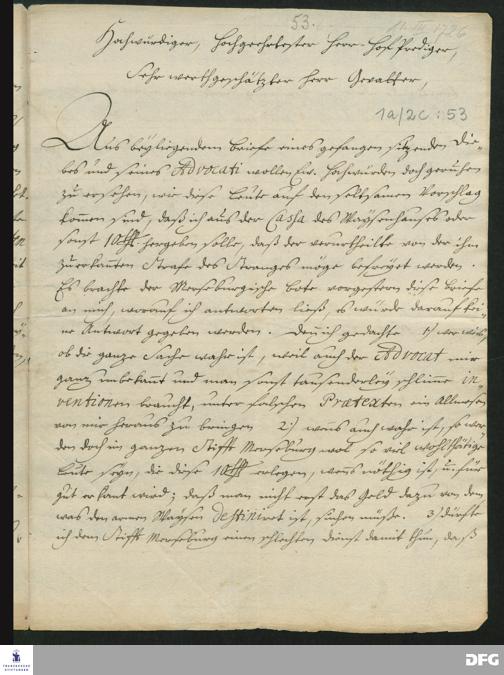 53.
1726
Hochwürdiger, Hochgeehrtester Herr Hof Prediger,
Sehr werthgeschätzter Herr Gevatter,
1a/2c : 53
Aus beyliegendem briefe eines gefangen sitzenden Die-
bes und seines Advocati wollen Ew. Hochwürden doch geruhen
zu ersehen, wie diese Leute auf den seltsamen Vorschlag
kommen sind, daß ich aus der Cassa des Waysenhauses oder
sonst 10 hergeben solle, daß der verurtheilte von der ihm
zuerkanten Strafe des Stranges möge befreyet werden.
Es brachte der Merseburgische bote vorgestern diese briefe
an mich, worauf ich antworten ließ, es würde darauf kei-
ne Antwort gegeben werden. Denn ich gedachte 1)
ob die ganze Sache wahr ist, weil auch der Advocat mir
ganz unbekannt und man sonst tausenderley schlimme in-
ventionen braucht, unter falschen Prætexten ein Allmosen
von mir heraus zu bringen 2) wenns auch wahr ist, so wer-
den doch im ganzen Stifft Merseburg wol so viel wohlthätige
Leute seyn, die diese 10 erlegen, wenns nöthig ist, u. für
gut erkant wird; daß man nicht erst das Geld dazu von dem
was den armen Waysen destiniret ist, suchen müße. 3) dürfte
ich dem Stifft Merseburg einen schlechten dienst damit thun, daß
FRANCKESCHE
STIFTUNGEN
DFG